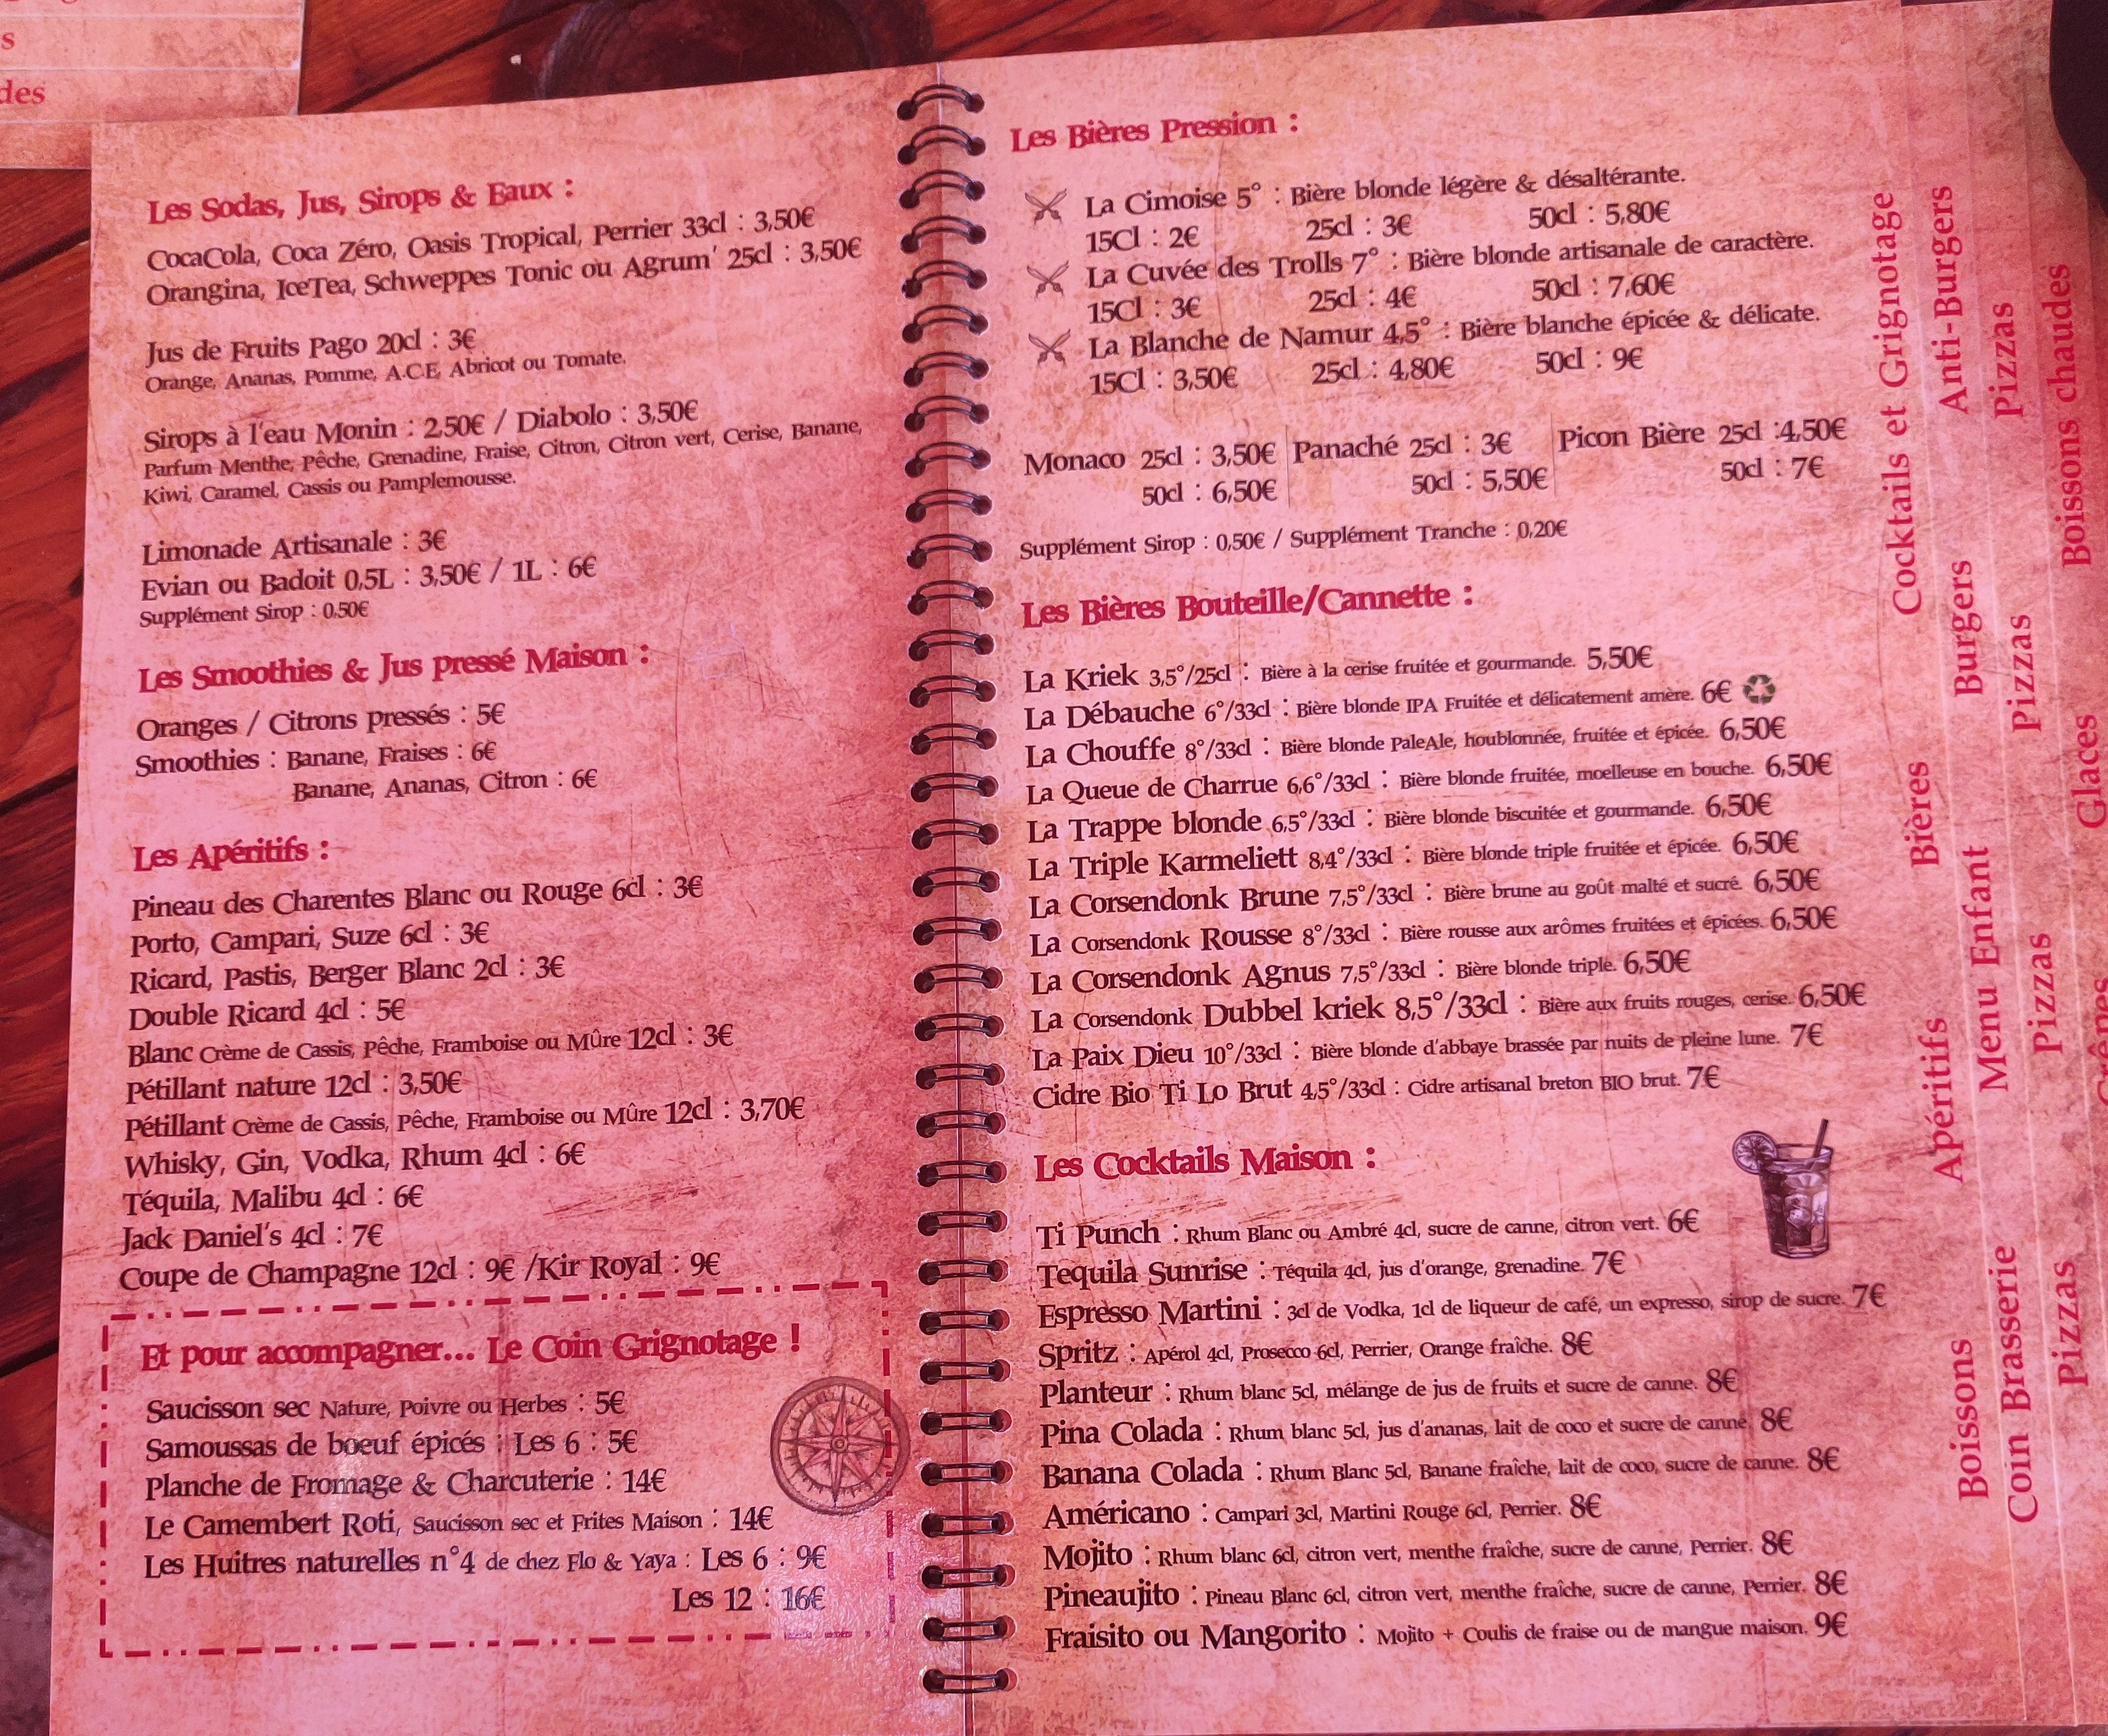 s
des
Les Sodas, Jus, Sirops & Eaux :
CocaCola, Coca Zéro, Oasis Tropical, Perrier 33cl : 3,50€
Orangina, IceTea, Schweppes Tonic ou Agrum' 25cl : 3,50€
Jus de Fruits Pago 20cl : 3€
Orange, Ananas, Pomme, A.C.E, Abricot ou Tomate.
Sirops à l'eau Monin : 2,50€ / Diabolo : 3,50€
Parfum Menthe, Pêche, Grenadine, Fraise, Citron, Citron vert, Cerise, Banane,
Kiwi, Caramel, Cassis ou Pamplemousse.
Limonade Artisanale : 3€
Evian ou Badoit 0,5L : 3,50€ / 1L : 6€
Supplément Sirop : 0,50€
Les Smoothies & Jus pressé Maison :
Oranges / Citrons pressés : 5€
Smoothies : Banane, Fraises : 6€
Banane, Ananas, Citron : 6€
Les Apéritifs :
Pineau des Charentes Blanc ou Rouge 6cl : 3€
Porto, Campari, Suze 6cl : 3€
Ricard, Pastis, Berger Blanc 2cl : 3€
Double Ricard 4cl : 5€
Blanc Crème de Cassis, Pêche, Framboise ou Mûre 12cl : 3€
Pétillant nature 12cl : 3,50€
Pétillant Crème de Cassis, Pêche, Framboise ou Mûre 12cl : 3,70€
Whisky, Gin, Vodka, Rhum 4cl : 6€
Téquila, Malibu 4cl : 6€
Jack Daniel's 4cl : 7€
Coupe de Champagne 12cl : 9€ /Kir Royal : 9€
Et pour accompagner... Le Coin Grignotage !
Saucisson sec Nature, Poivre ou Herbes : 5€
Samoussas de boeuf épicés : Les 6 : 5€
Planche de Fromage & Charcuterie : 14€
Le Camembert Roti, Saucisson sec et Frites Maison : 14€
Les Huitres naturelles n°4 de chez Flo & Yaya : Les 6 : 9€
Les 12 : 16€
Les Bières Pression :
La Cimoise 5° : Bière blonde légère & désaltérante.
15Cl : 2€ 25cl : 3€ 50cl : 5,80€
La Cuvée des Trolls 7° : Bière blonde artisanale de caractère.
15Cl : 3€ 25cl : 4€ 50cl : 7,60€
La Blanche de Namur 4,5° : Bière blanche épicée & délicate.
15Cl : 3,50€ 25cl : 4,80€ 50cl : 9€
Monaco 25cl : 3,50€ Panaché 25cl : 3€ Picon Bière 25cl :4,50€
50cl : 6,50€ 50cl : 5,50€ 50cl : 7€
Supplément Sirop : 0,50€ / Supplément Tranche : 0,20€
Les Bières Bouteille/Cannette :
La Kriek 3,5°/25cl : Bière à la cerise fruitée et gourmande. 5,50€
La Débauche 6°/33cl : Bière blonde IPA Fruitée et délicatement amère. 6€
La Chouffe 8°/33cl : Bière blonde PaleAle, houblonnée, fruitée et épicée. 6,50€
La Queue de Charrue 6,6°/33cl : Bière blonde fruitée, moelleuse en bouche. 6,50€
La Trappe blonde 6,5°/33cl : Bière blonde biscuitée et gourmande. 6,50€
La Triple Karmeliett 8,4°/33cl : Bière blonde triple fruitée et épicée. 6,50€
La Corsendonk Brune 7,5°/33cl : Bière brune au goût malté et sucré. 6,50€
La Corsendonk Rousse 8°/33cl : Bière rousse aux arômes fruitées et épicées. 6,50€
La Corsendonk Agnus 7,5°/33cl : Bière blonde triple. 6,50€
La Corsendonk Dubbel kriek 8,5°/33cl : Bière aux fruits rouges, cerise. 6,50€
La Paix Dieu 10°/33cl : Bière blonde d'abbaye brassée par nuits de pleine lune. 7€
Cidre Bio Ti Lo Brut 4,5°/33cl : Cidre artisanal breton BIO brut. 7€
Les Cocktails Maison :
Ti Punch : Rhum Blanc ou Ambré 4cl, sucre de canne, citron vert. 6€
Tequila Sunrise : Téquila 4cl, jus d'orange, grenadine. 7€
Espresso Martini : 3cl de Vodka, 1cl de liqueur de café, un expresso, sirop de sucre. 7€
Spritz : Apérol 4cl, Prosecco 6cl, Perrier, Orange fraîche. 8€
Planteur : Rhum blanc 5cl, mélange de jus de fruits et sucre de canne. 8€
Pina Colada : Rhum blanc 5cl, jus d'ananas, lait de coco et sucre de canne. 8€
Banana Colada : Rhum Blanc 5cl, Banane fraîche, lait de coco, sucre de canne. 8€
Américano : Campari 3cl, Martini Rouge 6cl, Perrier. 8€
Mojito : Rhum blanc 6cl, citron vert, menthe fraîche, sucre de canne, Perrier. 8€
Pineaujito : Pineau Blanc 6cl, citron vert, menthe fraîche, sucre de canne, Perrier. 8€
Fraisito ou Mangorito : Mojito + Coulis de fraise ou de mangue maison. 9€
Boissons Apéritifs Bières Cocktails et Grignotage
Coin Brasserie Menu Enfant Burgers Anti-Burgers
Pizzas Pizzas Pizzas Pizzas
Glaces Boissons chaudes